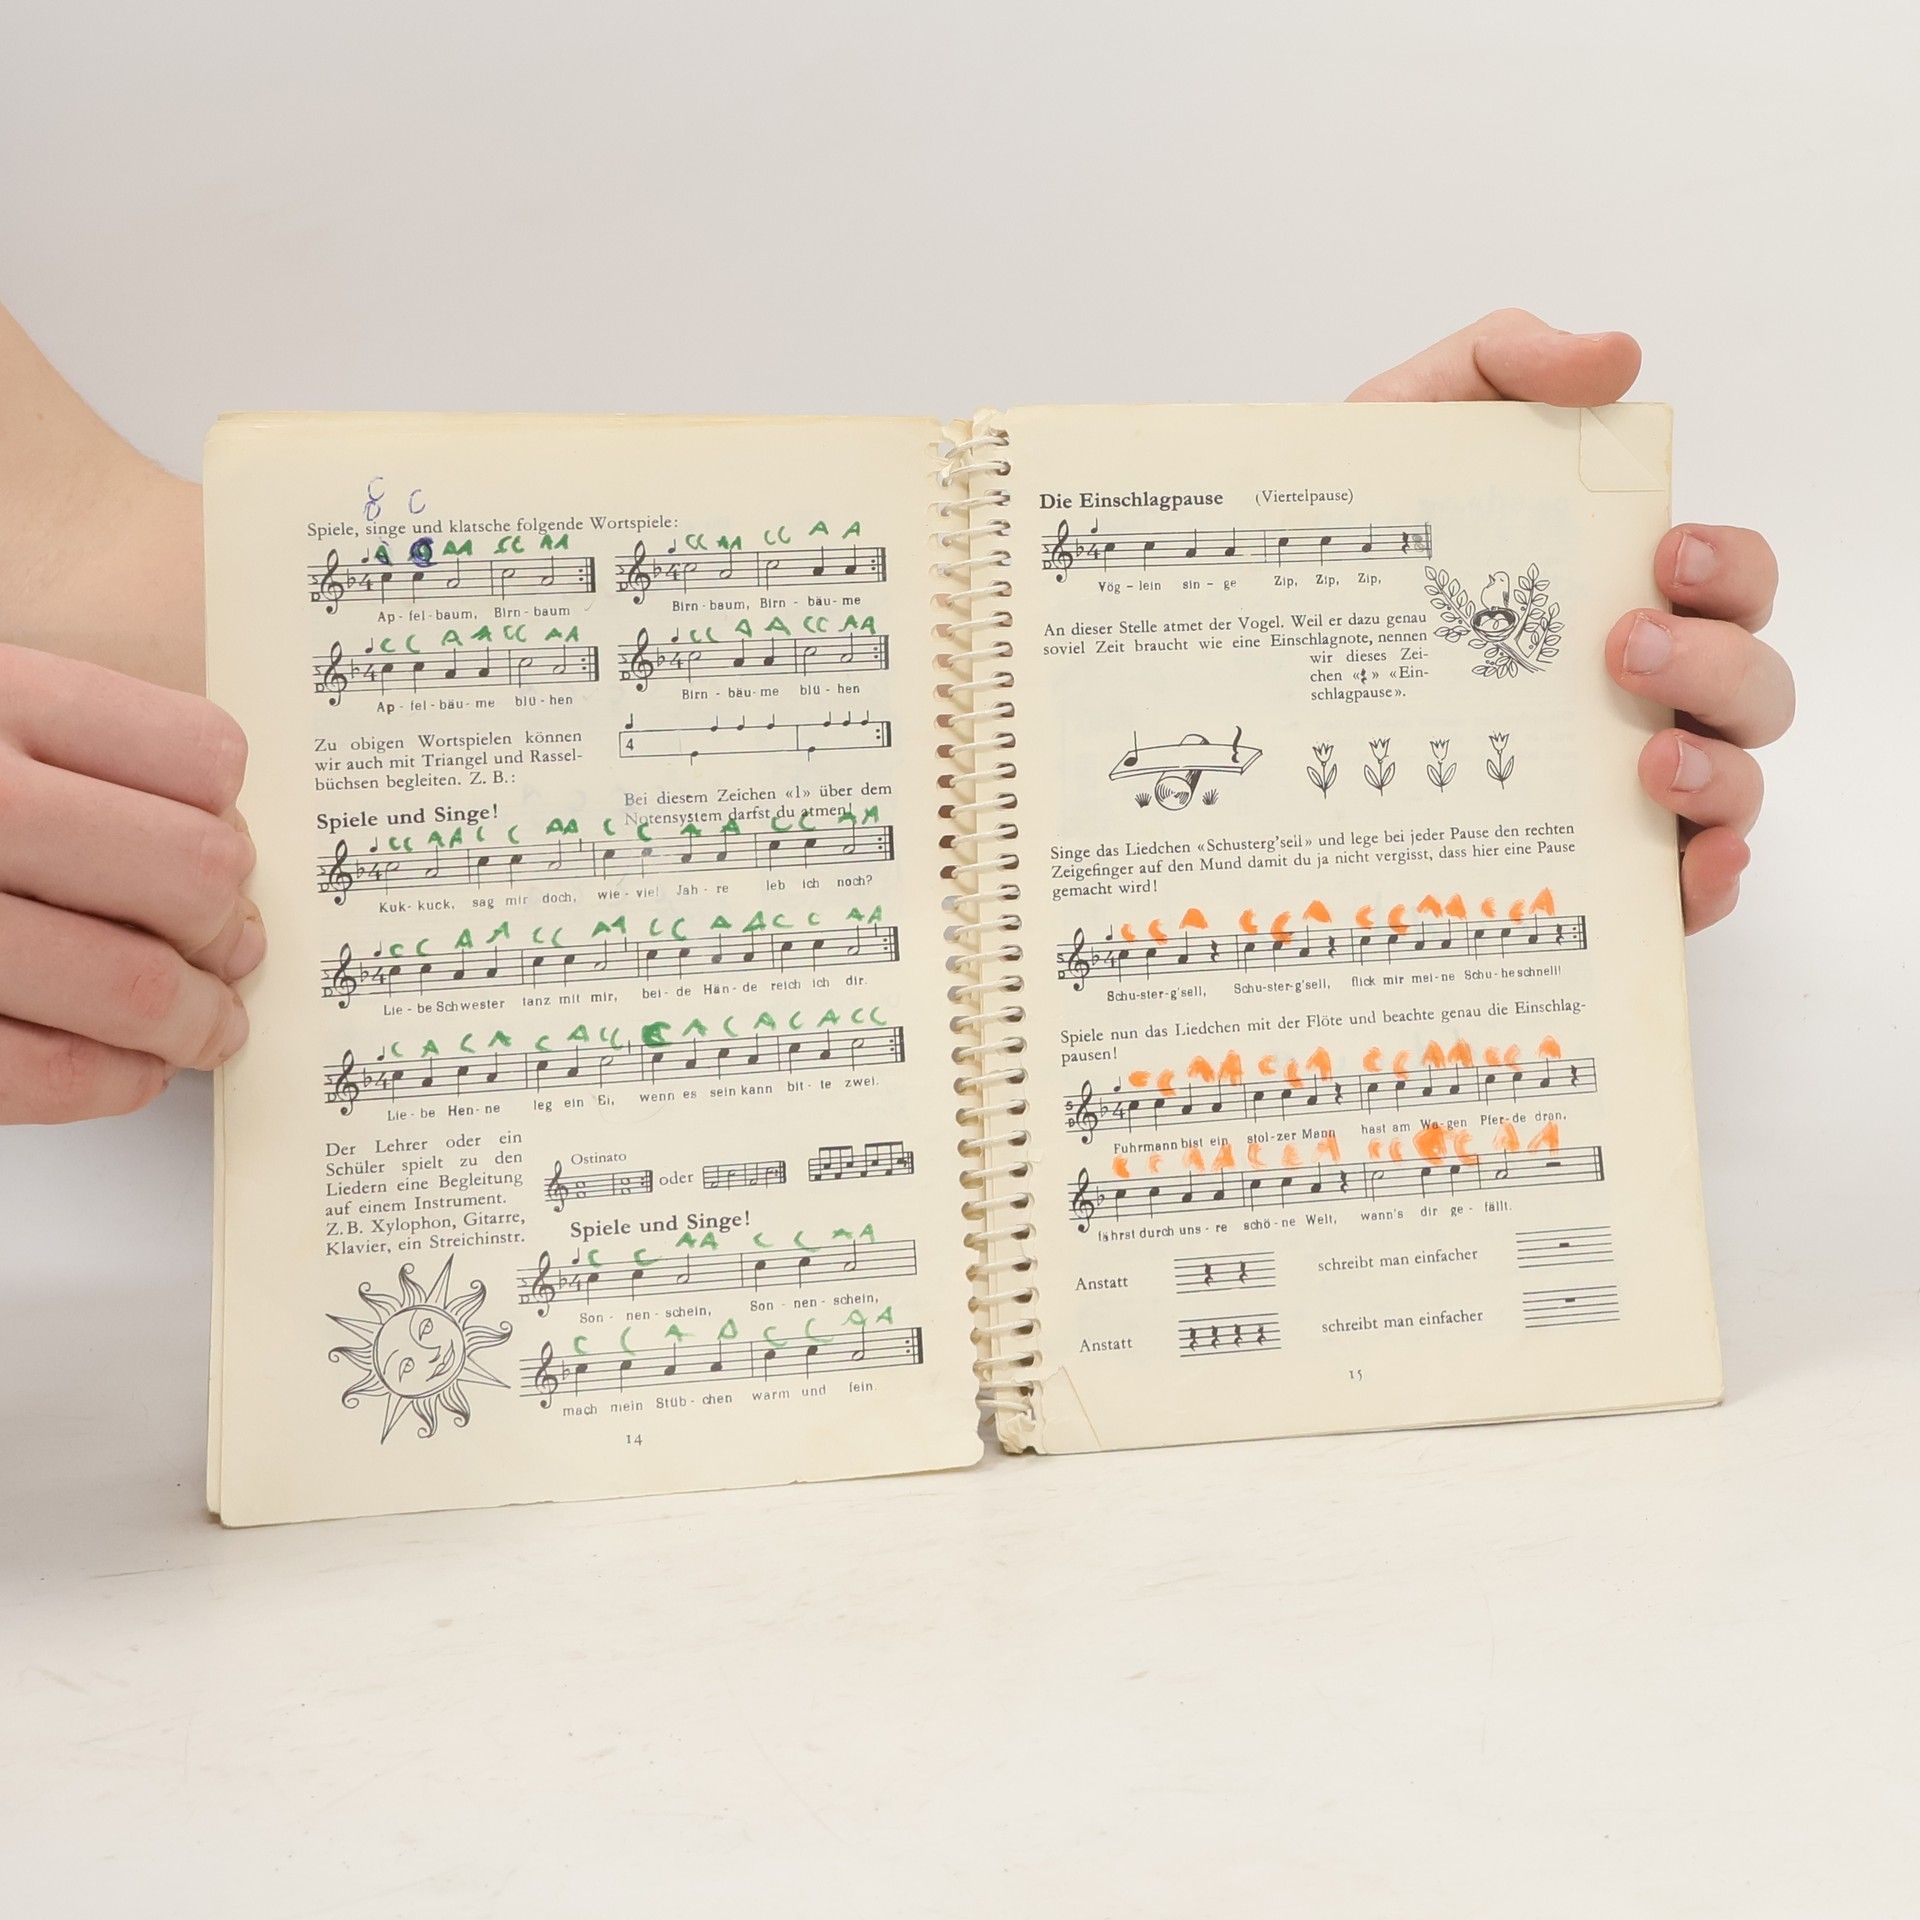 C
B C
Spiele, singe und klatsche folgende Wortspiele:
A AA CC AA
Ap - fel - baum, Birn - baum
CC AA CC A A
Birn - baum, Birn - bäu - me
CC A A CC AA
Ap - fel - bäu - me blü - hen
CC A A CC AA
Birn - bäu - me blü - hen
Zu obigen Wortspielen können
wir auch mit Triangel und Rassel-
büchsen begleiten. Z. B.:
4
Bei diesem Zeichen «l» über dem
Notensystem darfst du atmen!
Spiele und Singe!
CC AA C C AA C C A A C C AA
Kuk - kuck, sag mir doch, wie - viel Jah - re leb ich noch?
C C A A C C AA C C A A C C AA
Lie - be Schwester tanz mit mir, bei - de Hän - de reich ich dir.
C A C A C A CC C A C A C A CC
Lie - be Hen - ne leg ein Ei, wenn es sein kann bit - te zwei.
Der Lehrer oder ein
Schüler spielt zu den
Liedern eine Begleitung
auf einem Instrument.
Z. B. Xylophon, Gitarre,
Klavier, ein Streichinstr.
Ostinato
oder
Spiele und Singe!
C C AA C C AA
Son - nen - schein, Son - nen - schein,
C C A A C C A A
mach mein Stüb - chen warm und fein.
14
Die Einschlagpause (Viertelpause)
Vög - lein sin - ge Zip, Zip, Zip,
An dieser Stelle atmet der Vogel. Weil er dazu genau
soviel Zeit braucht wie eine Einschlagnote, nennen
wir dieses Zei-
chen «𝄽» «Ein-
schlagpause».
Singe das Liedchen «Schusterg'sell» und lege bei jeder Pause den rechten
Zeigefinger auf den Mund damit du ja nicht vergisst, dass hier eine Pause
gemacht wird!
C C A C C A C C A A C C A
Schu-ster-g'sell, Schu-ster-g'sell, flick mir mei-ne Schu-he schnell!
Spiele nun das Liedchen mit der Flöte und beachte genau die Einschlag-
pausen!
C C A A C C A C C A A C C A
Fuhrmann bist ein stol-zer Mann hast am Wa-gen Pfer-de dran,
C C A A C C A C C C C A A
fährst durch uns - re schö - ne Welt, wann's dir ge - fällt.
Anstatt schreibt man einfacher
Anstatt schreibt man einfacher
15